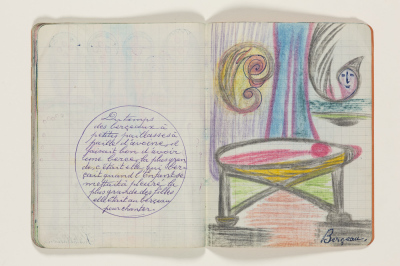 Du temps
des berceaux à
petites paillasses à
paille d'avoine, il
faisait bon d'avoir
une berce, la plus gran
de c'était elle qui ber
çait quand l'enfant se
mettait à pleurer la
plus grande des filles
elle était au berceau
pour chanter
Berceau